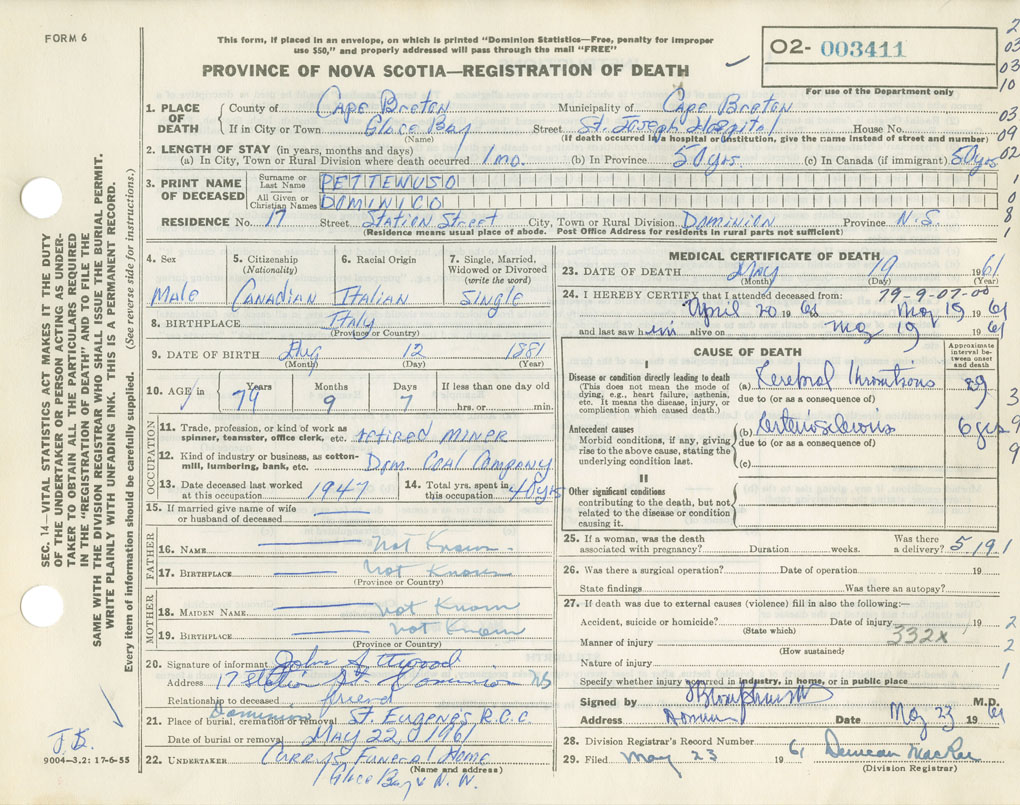 FORM 6
This form, if placed in an envelope, on which is printed "Dominion Statistics—Free, penalty for improper
use $50," and properly addressed will pass through the mail "FREE"
PROVINCE OF NOVA SCOTIA—REGISTRATION OF DEATH
O2- 003411
For use of the Department only
1. PLACE OF DEATH County of Cape Breton Municipality of Cape Breton
If in City or Town Glace Bay Street St. Joseph Hospital House No.
(Name) (If death occurred in a hospital or institution, give the name instead of street and number)
2. LENGTH OF STAY (in years, months and days)
(a) In City, Town or Rural Division where death occurred 1 mo. (b) In Province 50 yrs. (c) In Canada (if immigrant) 50 yrs
3. PRINT NAME OF DECEASED Surname or Last Name PETTEWUSO
All Given or Christian Names DOMINICO
RESIDENCE No. 17 Street Station Street City, Town or Rural Division DOMINION Province N.S.
(Residence means usual place of abode. Post Office Address for residents in rural parts not sufficient)
4. Sex Male
5. Citizenship (Nationality) Canadian
6. Racial Origin Italian
7. Single, Married, Widowed or Divorced (write the word) Single
8. BIRTHPLACE Italy
(Province or Country)
9. DATE OF BIRTH Aug 12 1881
(Month) (Day) (Year)
10. AGE Years 79 Months 9 Days 7 If less than one day old
hrs. or min.
OCCUPATION
11. Trade, profession, or kind of work as spinner, teamster, office clerk, etc. retired miner
12. Kind of industry or business, as cotton-mill, lumbering, bank, etc. Dom. Coal Company
13. Date deceased last worked at this occupation 1947 14. Total yrs. spent in this occupation 40 yrs
15. If married give name of wife or husband of deceased
FATHER
16. NAME Not Known
17. BIRTHPLACE Not Known
(Province or Country)
MOTHER
18. MAIDEN NAME Not Known
19. BIRTHPLACE Not Known
(Province or Country)
20. Signature of informant John Attwood
Address 17 Station St. Dominion NS
Relationship to deceased friend
21. Place of burial, cremation or removal Dominion St. Eugene's R.C.C.
Date of burial or removal May 22, 1961
22. UNDERTAKER Curry's Funeral Home
(Name and address)
Glace Bay
MEDICAL CERTIFICATE OF DEATH
23. DATE OF DEATH May 19 1961
(Month) (Day) (Year)
79-9-07-00
24. I HEREBY CERTIFY that I attended deceased from:
April 20 1961 to May 19 1961
and last saw him alive on May 19 1961
CAUSE OF DEATH
Approximate interval between onset and death
I
Disease or condition directly leading to death
(This does not mean the mode of dying, e.g., heart failure, asthenia, etc. It means the disease, injury, or complication which caused death.)
(a) Cerebral Thrombosis
due to (or as a consequence of)
Antecedent causes
Morbid conditions, if any, giving rise to the above cause, stating the underlying condition last.
(b) Arteriosclerosis 6 yrs
due to (or as a consequence of)
(c)
II
Other significant conditions
contributing to the death, but not related to the disease or condition causing it.
25. If a woman, was the death associated with pregnancy? Duration weeks. Was there a delivery? 5 19 1
26. Was there a surgical operation? Date of operation 19
State findings Was there an autopsy?
27. If death was due to external causes (violence) fill in also the following:—
Accident, suicide or homicide? Date of injury 19
(State which)
332x
Manner of injury
(How sustained)
Nature of injury
Specify whether injury occurred in industry, in home, or in public place
Signed by M.D.
Address Date May 23 1961
28. Division Registrar's Record Number
29. Filed May 23 1961 Duncan MacRae
(Division Registrar)
SEC. 14—VITAL STATISTICS ACT MAKES IT THE DUTY
OF THE UNDERTAKER OR PERSON ACTING AS UNDER-
TAKER TO OBTAIN ALL THE PARTICULARS REQUIRED
IN THE "REGISTRATION OF DEATH" AND TO FILE THE
SAME WITH THE DIVISION REGISTRAR WHO SHALL ISSUE THE BURIAL PERMIT.
WRITE PLAINLY WITH UNFADING INK. THIS IS A PERMANENT RECORD.
Every item of information should be carefully supplied. (See reverse side for instructions.)
9004—3.2: 17-6-55
2
03
03
10
03
09
02
1
0
8
1
3
9
9
2
2
1